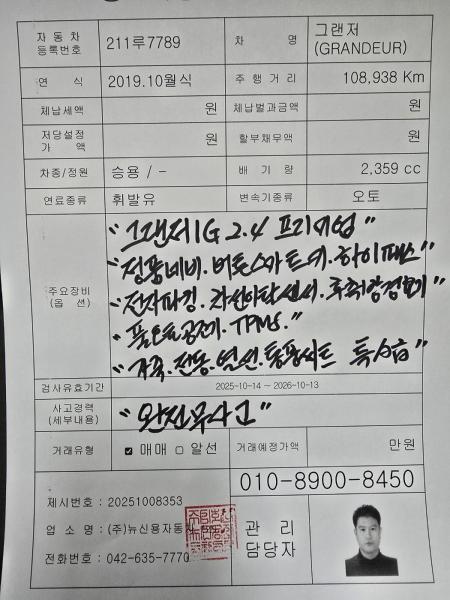 자동차등록번호 211루7789 차 명 그랜저(GRANDEUR)
연 식 2019.10월식 주행거리 108,938 Km
체납세액 원 체납벌과금액 원
저당설정가 액 원 할부채무액 원
차종/정원 승용 / - 배 기 량 2,359 cc
연료종류 휘발유 변속기종류 오토
주요장비(옵 션)
"그랜저IG 2.4 프리미엄"
"정품네비.버튼스마트키.하이패스
"전자파킹.차선이탈센서.후측방경보기
"풀오토공조기.TPMS."
"가죽.전동.열선.통풍시트 특A급"
검사유효기간 2025-10-14 ~ 2026-10-13
사고경력(세부내용) "완전무사고"
거래유형 매매 알선 거래예정가액 만원
010-8900-8450
제시번호 : 20251008353
업 소 명 : (주)뉴신용자동차
전화번호 : 042-635-7770
관 리
담당자